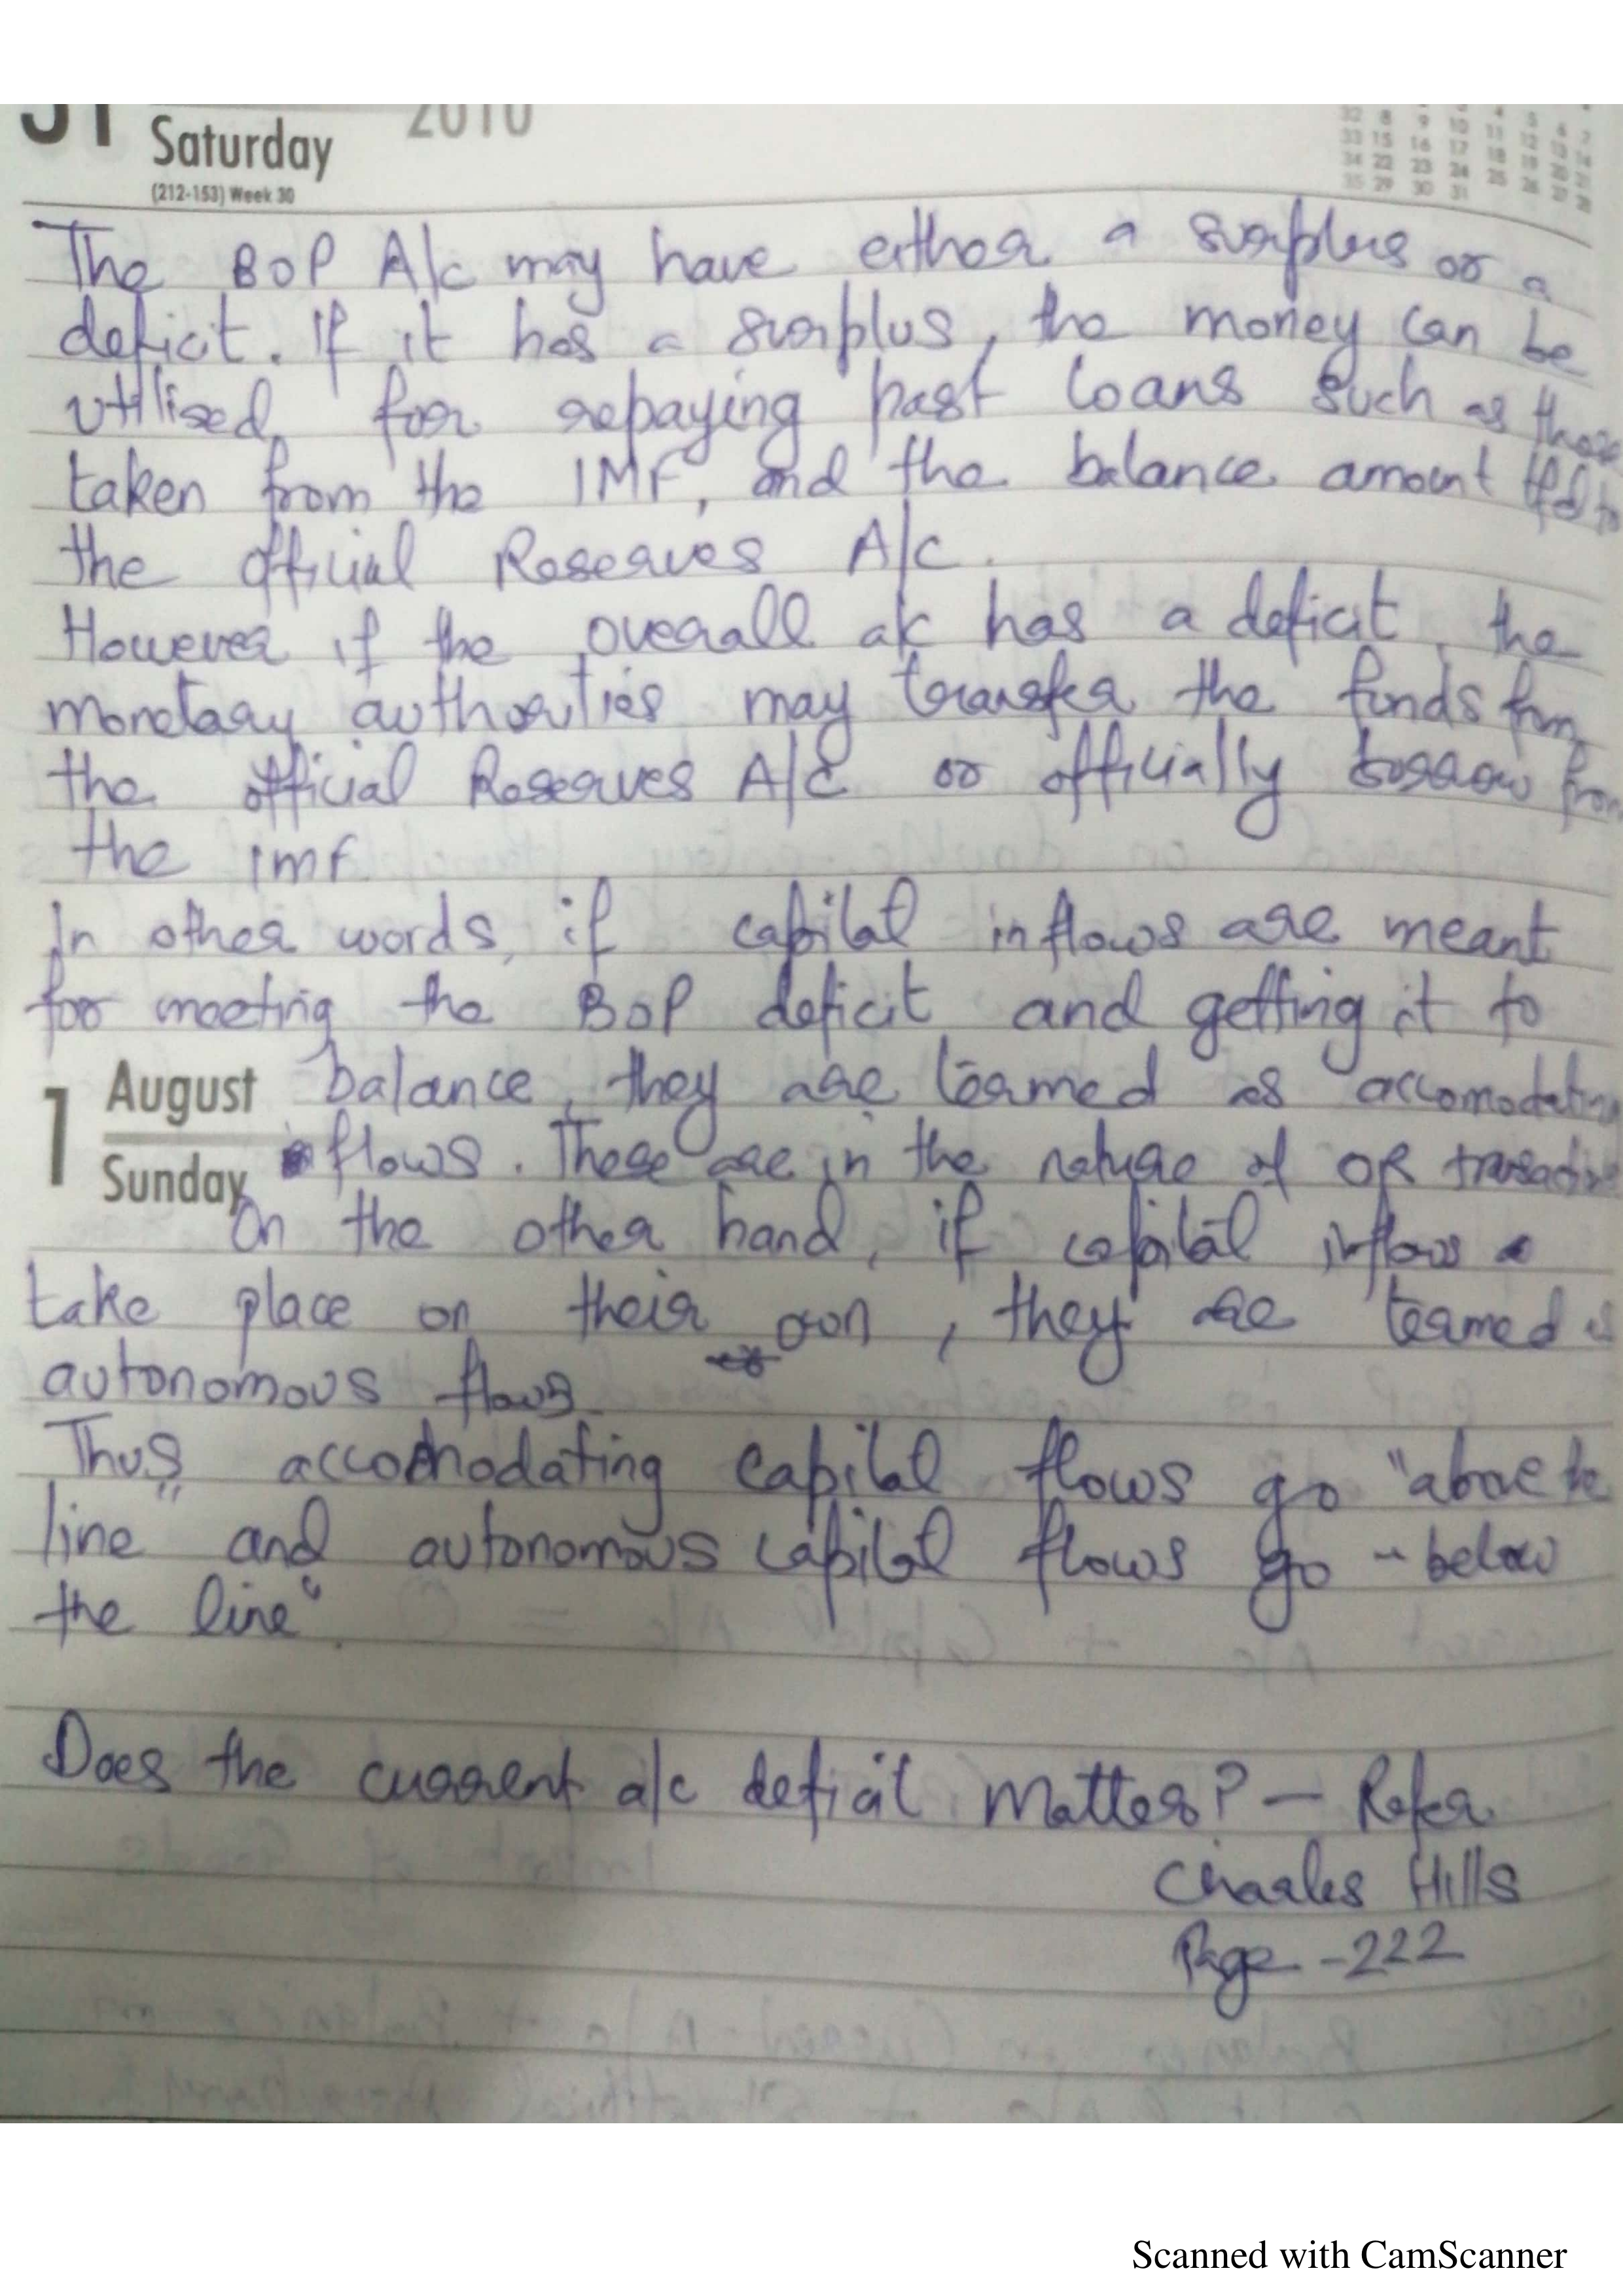 31 Saturday 2010
(212-153) Week 30
32 8 9 10 11 12 13 14
33 15 16 17 18 19 20 21
34 22 23 24 25 26 27 28
35 29 30 31
The BOP A/c may have either a surplus or a
deficit. If it has a surplus, the money can be
utilised for repaying past loans such as those
taken from the IMF, and the balance amount tfd to
the official Reserves A/c.
However if the overall a/c has a deficit, the
monetary authorities may transfer the funds from
the official Reserves A/c or officially borrow from
the IMF
In other words, if capital inflows are meant
for meeting the BOP deficit and getting it to
1 August
Sunday
balance, they are termed as accomodating
flows. These are in the nature of OR
On the other hand, if capital inflows
take place on their own, they are termed as
autonomous flows
Thus accomodating capital flows go "above the
line" and autonomous capital flows go "below
the line".
Does the current a/c deficit matter? - Refer
Charles Hills
Page - 222
Scanned with CamScanner